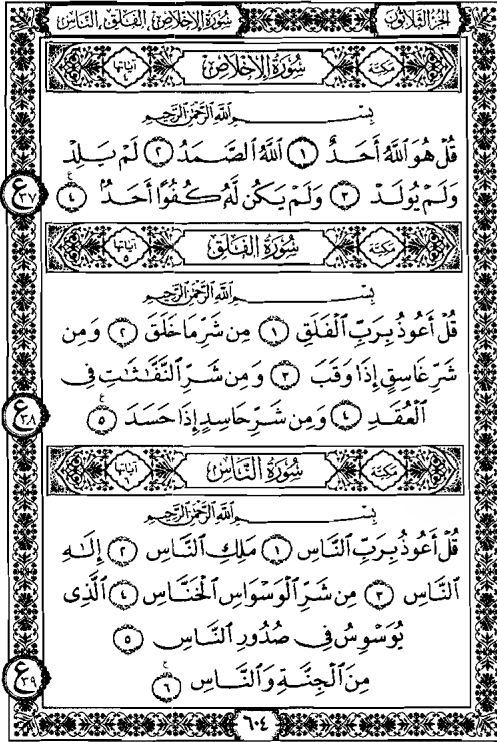 الجزء الثلاثون سورة الإخلاص، الفلق، الناس
مكية سورة الإخلاص آياتها
بِسْمِ اللَّهِ الرَّحْمَٰنِ الرَّحِيمِ
قُلْ هُوَ اللَّهُ أَحَدٌ ١ اللَّهُ الصَّمَدُ ٢ لَمْ يَلِدْ
وَلَمْ يُولَدْ ٣ وَلَمْ يَكُن لَّهُ كُفُوًا أَحَدٌ ٤ ع ٣٧
مكية سورة الفلق آياتها ٥
بِسْمِ اللَّهِ الرَّحْمَٰنِ الرَّحِيمِ
قُلْ أَعُوذُ بِرَبِّ الْفَلَقِ ١ مِن شَرِّ مَا خَلَقَ ٢ وَمِن
شَرِّ غَاسِقٍ إِذَا وَقَبَ ٣ وَمِن شَرِّ النَّفَّٰثَٰتِ فِى
الْعُقَدِ ٤ وَمِن شَرِّ حَاسِدٍ إِذَا حَسَدَ ٥ ع ٣٨
مكية سورة الناس آياتها ٦
بِسْمِ اللَّهِ الرَّحْمَٰنِ الرَّحِيمِ
قُلْ أَعُوذُ بِرَبِّ النَّاسِ ١ مَلِكِ النَّاسِ ٢ إِلَٰهِ
النَّاسِ ٣ مِن شَرِّ الْوَسْوَاسِ الْخَنَّاسِ ٤ الَّذِى
يُوَسْوِسُ فِى صُدُورِ النَّاسِ ٥
مِنَ الْجِنَّةِ وَالنَّاسِ ٦ ع ٣٩
٦٠٤